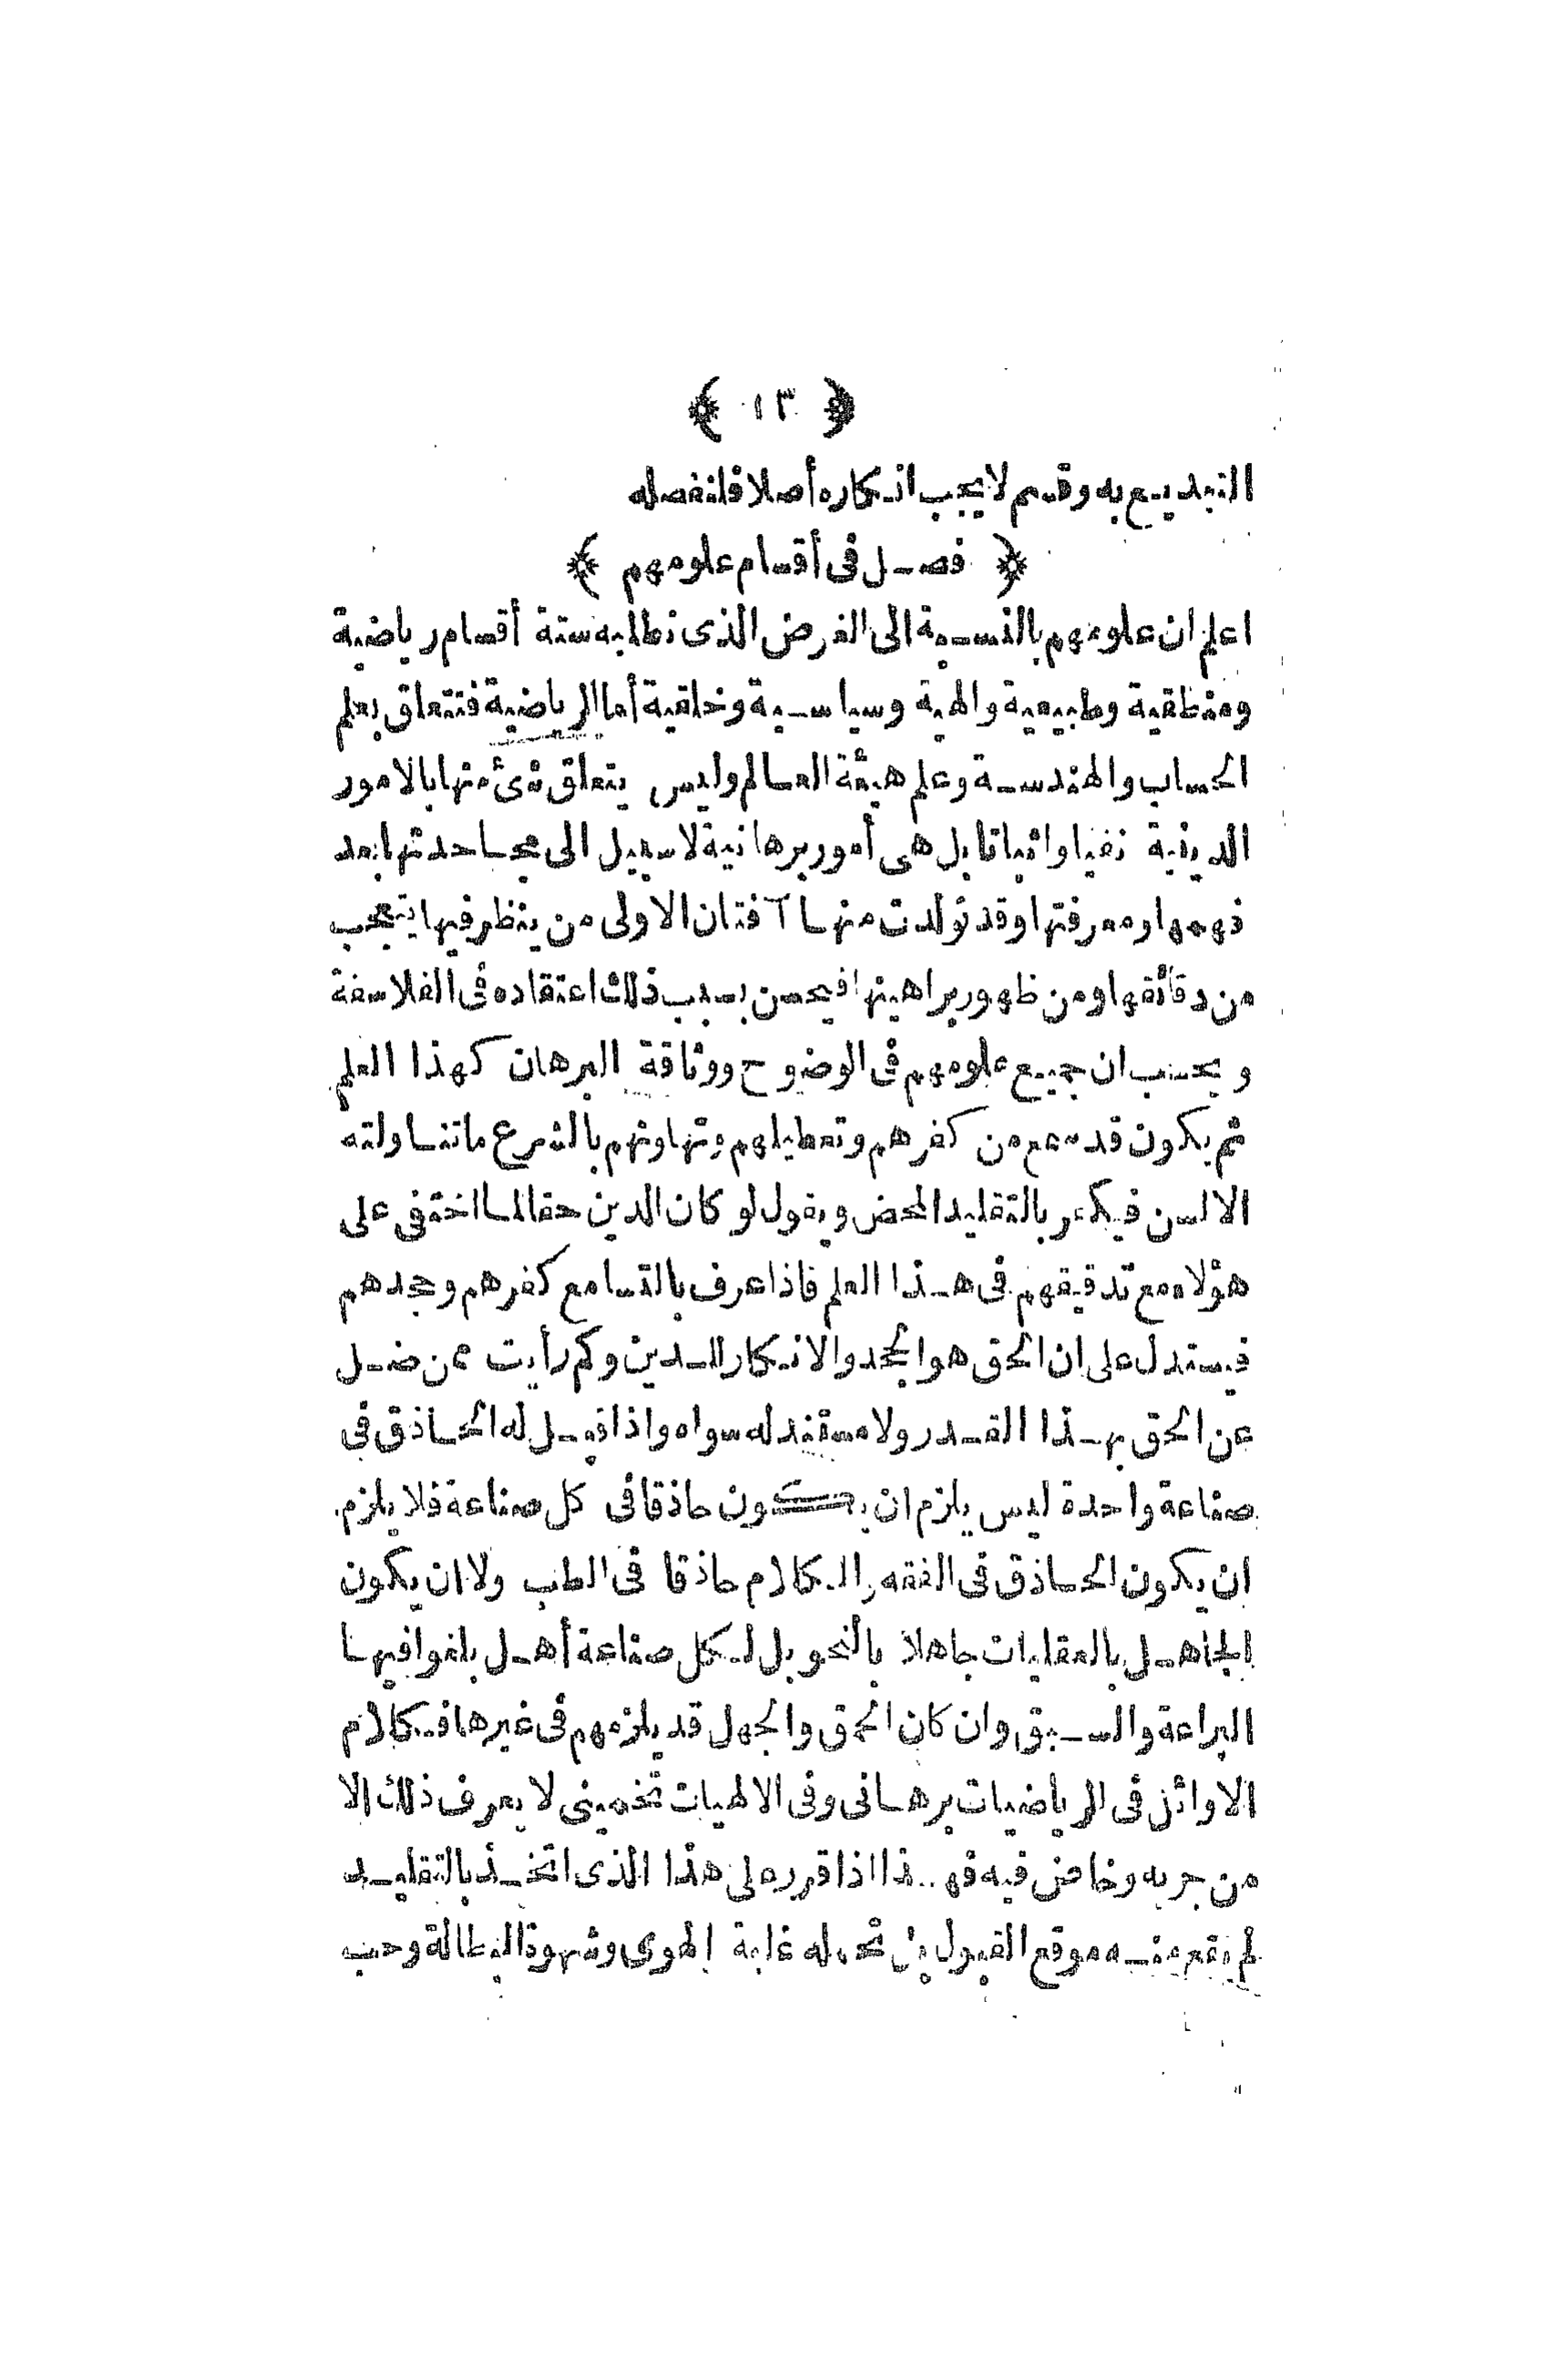 ﴿ ١٣ ﴾
التبديع به وقسم لا يجب انكاره أصلا فلنفصله
﴿ فصل فى أقسام علومهم ﴾
اعلم ان علومهم بالنسبة الى الغرض الذى نطلبه ستة أقسام رياضية
ومنطقية وطبيعية والهية وسياسية وخلقية أما الرياضية فتتعلق بعلم
الحساب والهندسة وعلم هيئة العالم وليس يتعلق شئ منها بالامور
الدينية نفيا واثباتا بل هى أمور برهانية لا سبيل الى مجاحدتها بعد
فهمها ومعرفتها وقد تولدت منها آفتان الاولى من ينظر فيها يتعجب
من دقائقها ومن ظهور براهينها فيحسن بسبب ذلك اعتقاده فى الفلاسفة
ويحسب ان جميع علومهم فى الوضوح ووثاقة البرهان كهذا العلم
ثم يكون قد سمع من كفرهم وتعطيلهم وتهاونهم بالشرع ما تناولته
الالسن فيكفر بالتقليد المحض ويقول لو كان الدين حقا لما اختفى على
هؤلاء مع تدقيقهم فى هذا العلم فاذا عرف بالتسامع كفرهم وجحدهم
فيستدل على ان الحق هو الجحد والانكار للدين وكم رأيت ممن ضل
عن الحق بهذا القدر ولا مستند له سواه واذا قيل له الحاذق فى
صناعة واحدة ليس يلزم ان يكون حاذقا فى كل صناعة فلا يلزم
ان يكون الحاذق فى الفقه والكلام حاذقا فى الطب ولا ان يكون
الجاهل بالعقليات جاهلا بالنحو بل لكل صناعة أهل بلغوا فيها
البراعة والسبق وان كان الحمق والجهل قد يلزمهم فى غيرها فكلام
الاوائل فى الرياضيات برهانى وفى الالهيات تخمينى لا يعرف ذلك الا
من جربه وخاض فيه فهذا اذا قرر على هذا الذى اتخذ بالتقليد
لم يقع منه موقع القبول بل تحمله غلبة الهوى وشهوة البطالة وحب